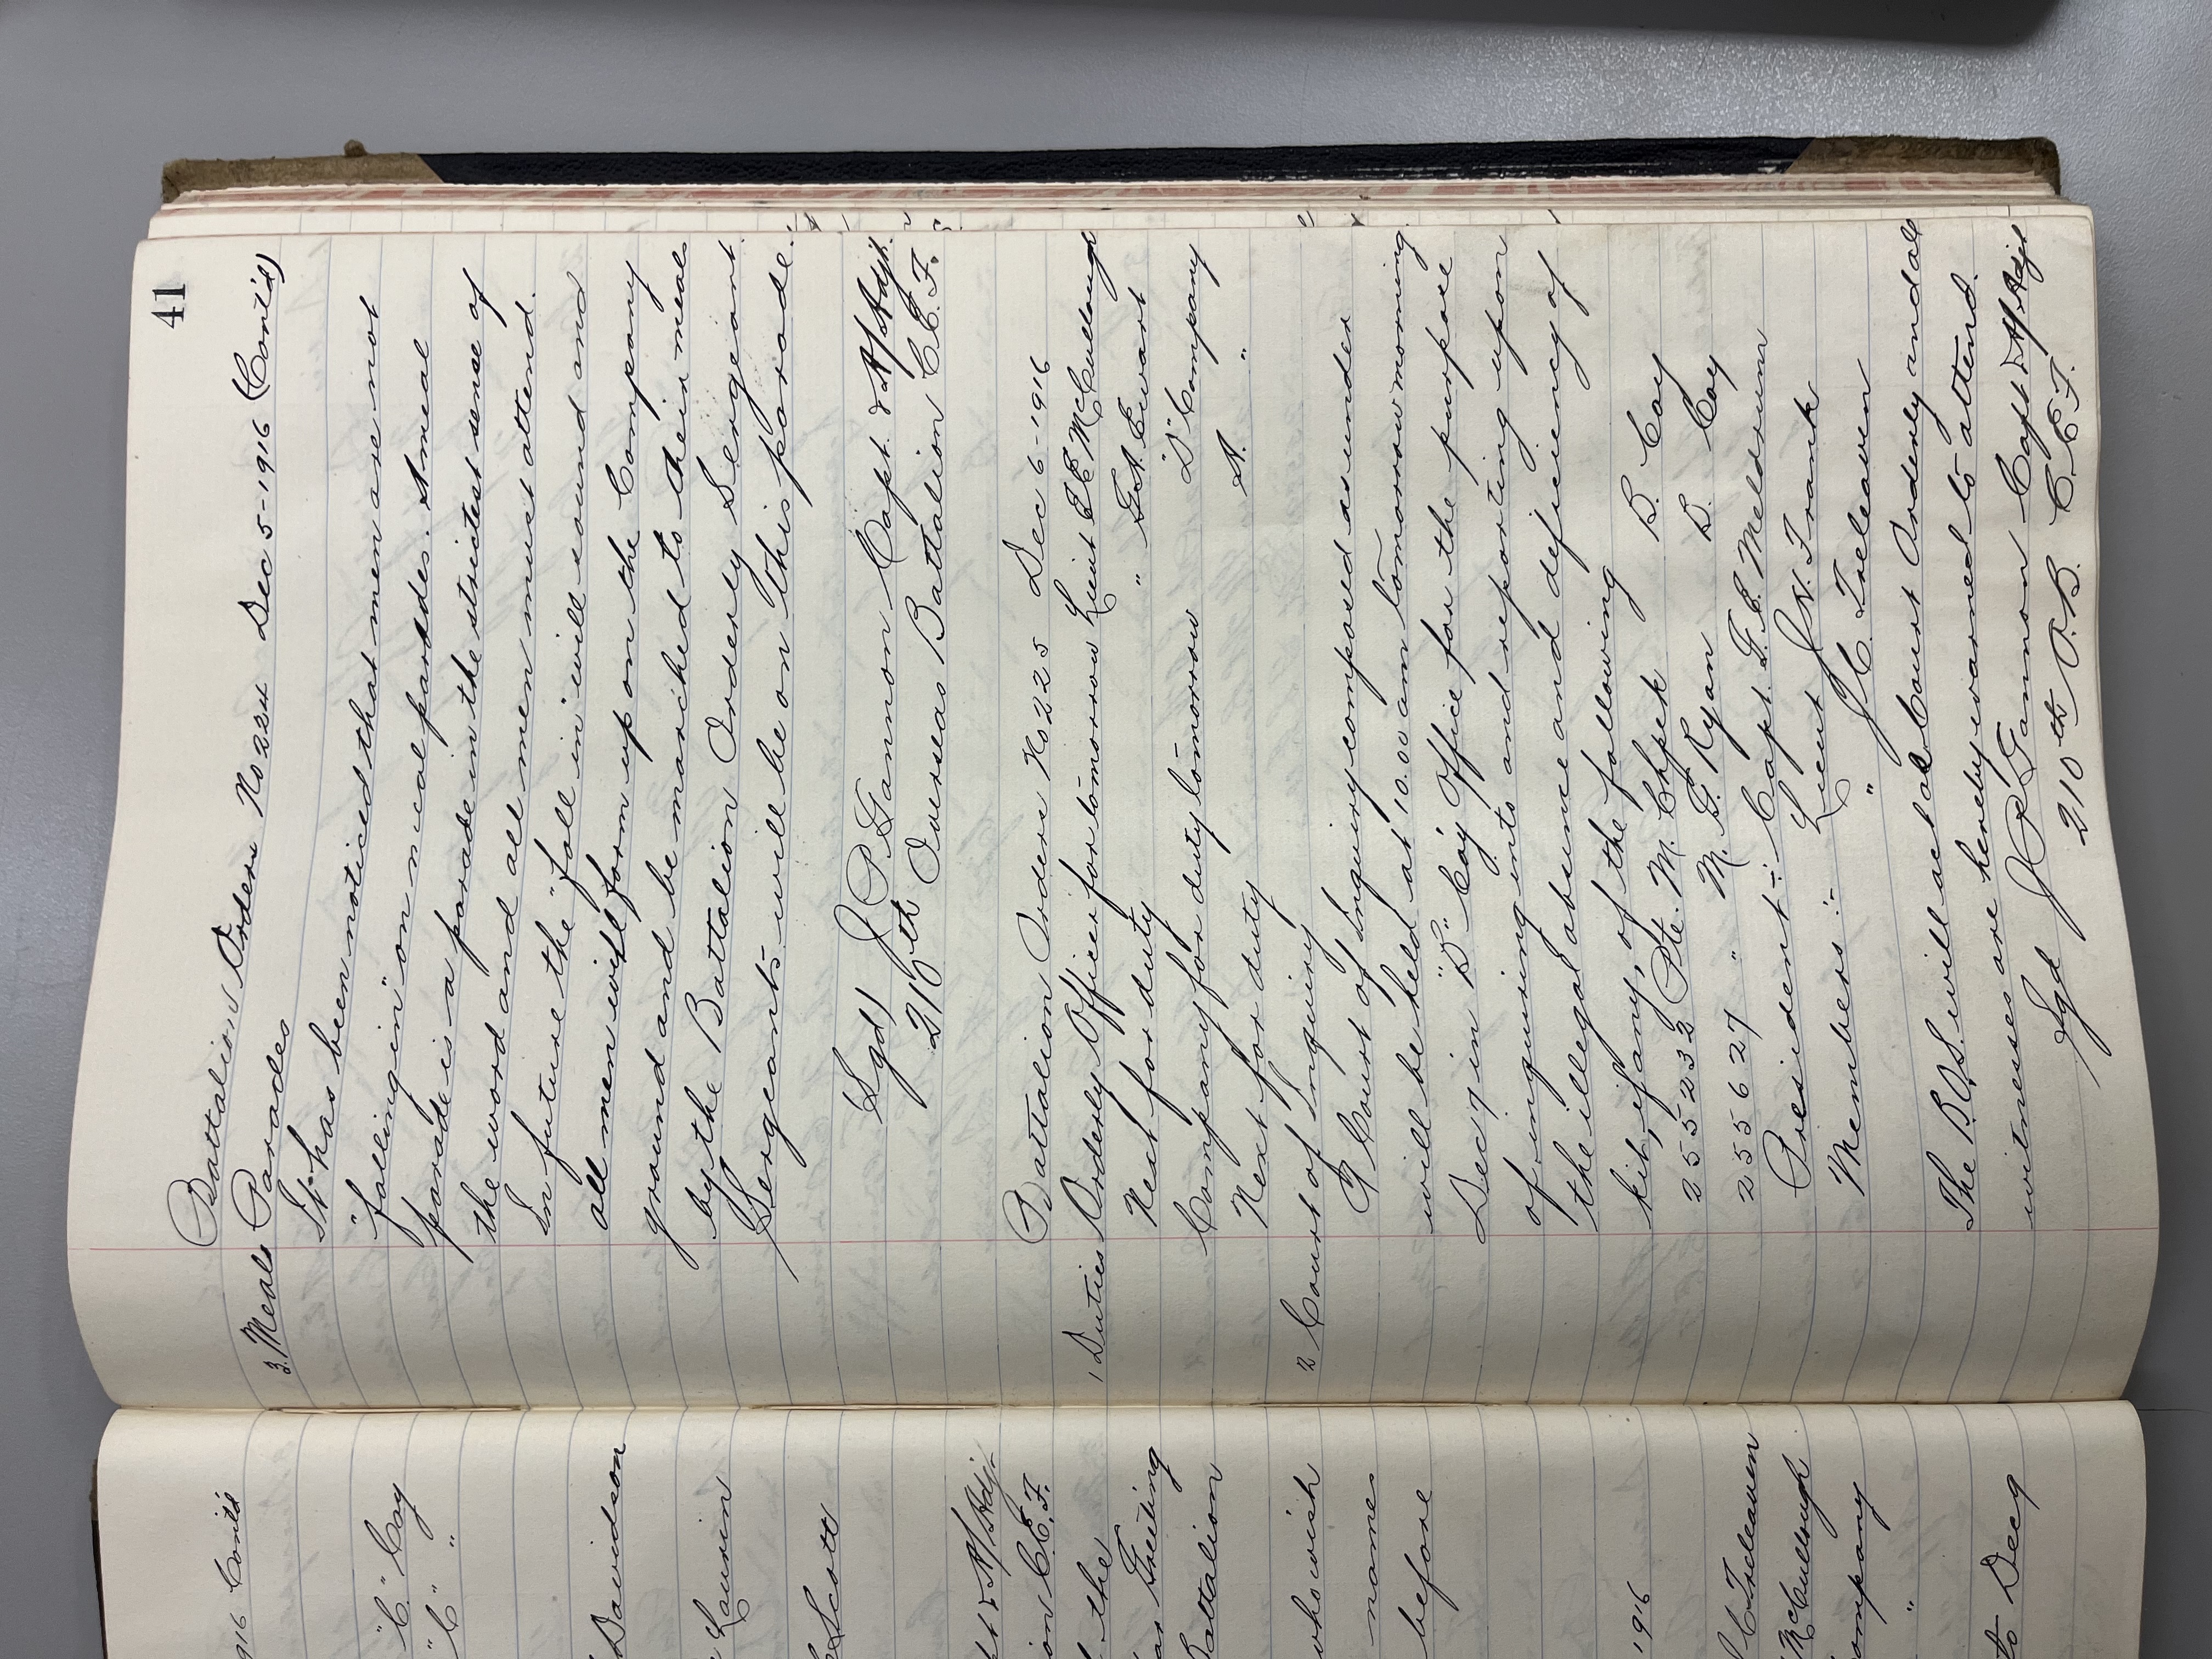 916 Cont'd
"C" Coy
"C" "
Davidson
Laurin
Scott
& A/Adj.
ion C.E.F.
the
Greeting
Battalion
who wish
names
before
1916
C Treleaven
McCullough
ompany
"
to Dec 9
41
Battalion Orders No 224 Dec 5-1916 (Cont'd)
3. Meals Parades
It has been noticed that men are not
"falling in" on meal parades. A meal
parade is a parade in the strictest sense of
the word and all men must attend.
In future the "fall in" will sound and
all men will form up on the Company
ground and be marched to their meals
by the Battalion Orderly Sergeant.
Sergeants will be on this parade.
Sgd) J P. Gannon Capt. & A/Adjt.
210th Overseas Battalion C.E.F.
Battalion Orders No 225 Dec 6-1916
1 Duties Orderly Officer for tomorrow Lieut E E McCullough
Next for duty " G.A. Ewart
Company for duty tomorrow "D" Company
Next for duty A. "
2 Court of Inquiry
A Court of Inquiry composed as under
will be held at 10.00 am tomorrow morning
Dec 7 in "B" Coy Office for the purpose
of inquiring into and reporting upon
the illegal absence and deficiency of
kit, if any, of the following
255232 Pte. M. Chpek B. Coy
255627 " M. G. Ryan D. Coy
President :- Capt. G. E. Meldrum
Members :- Lieut J.W. Frank
" J C. Treleaven
The B.O.S. will act as Court Orderly and all
witnesses are hereby warned to attend.
Sgd J P Gannon Capt & A/Adjt
210th O.B. C.E.F.